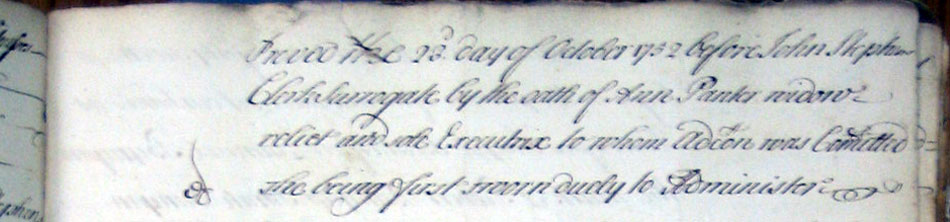 Proved the 23d. day of October 1752 before John Stephens
Clerk Surrogate by the oath of Ann Panter widow
relict and sole Executrix to whom Adcon was Comitted
She being first sworn duely to Administer